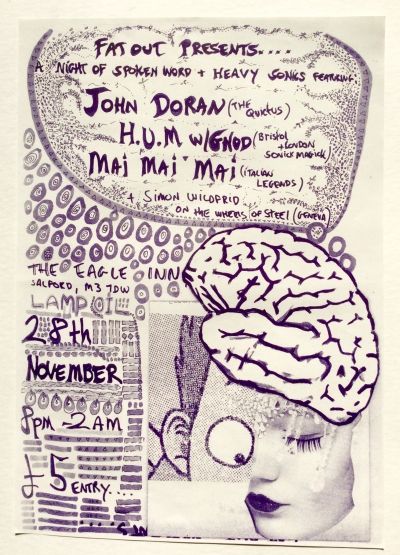 FAT OUT PRESENTS....
A NIGHT OF SPOKEN WORD + HEAVY SONICS FEATURING.
JOHN DORAN (THE QUIETUS)
H.U.M W/GNOD (BRISTOL + LONDON SONICK MAGICK)
MAI MAI MAI (ITALIAN LEGENDS)
+ SIMON WILDFRID
ON THE WHEELS OF STEEL (GENEVA)
THE EAGLE INN
SALFORD, M3 7DW
LAMP OIL
28th
NOVEMBER
8PM - 2AM
£5 ENTRY...